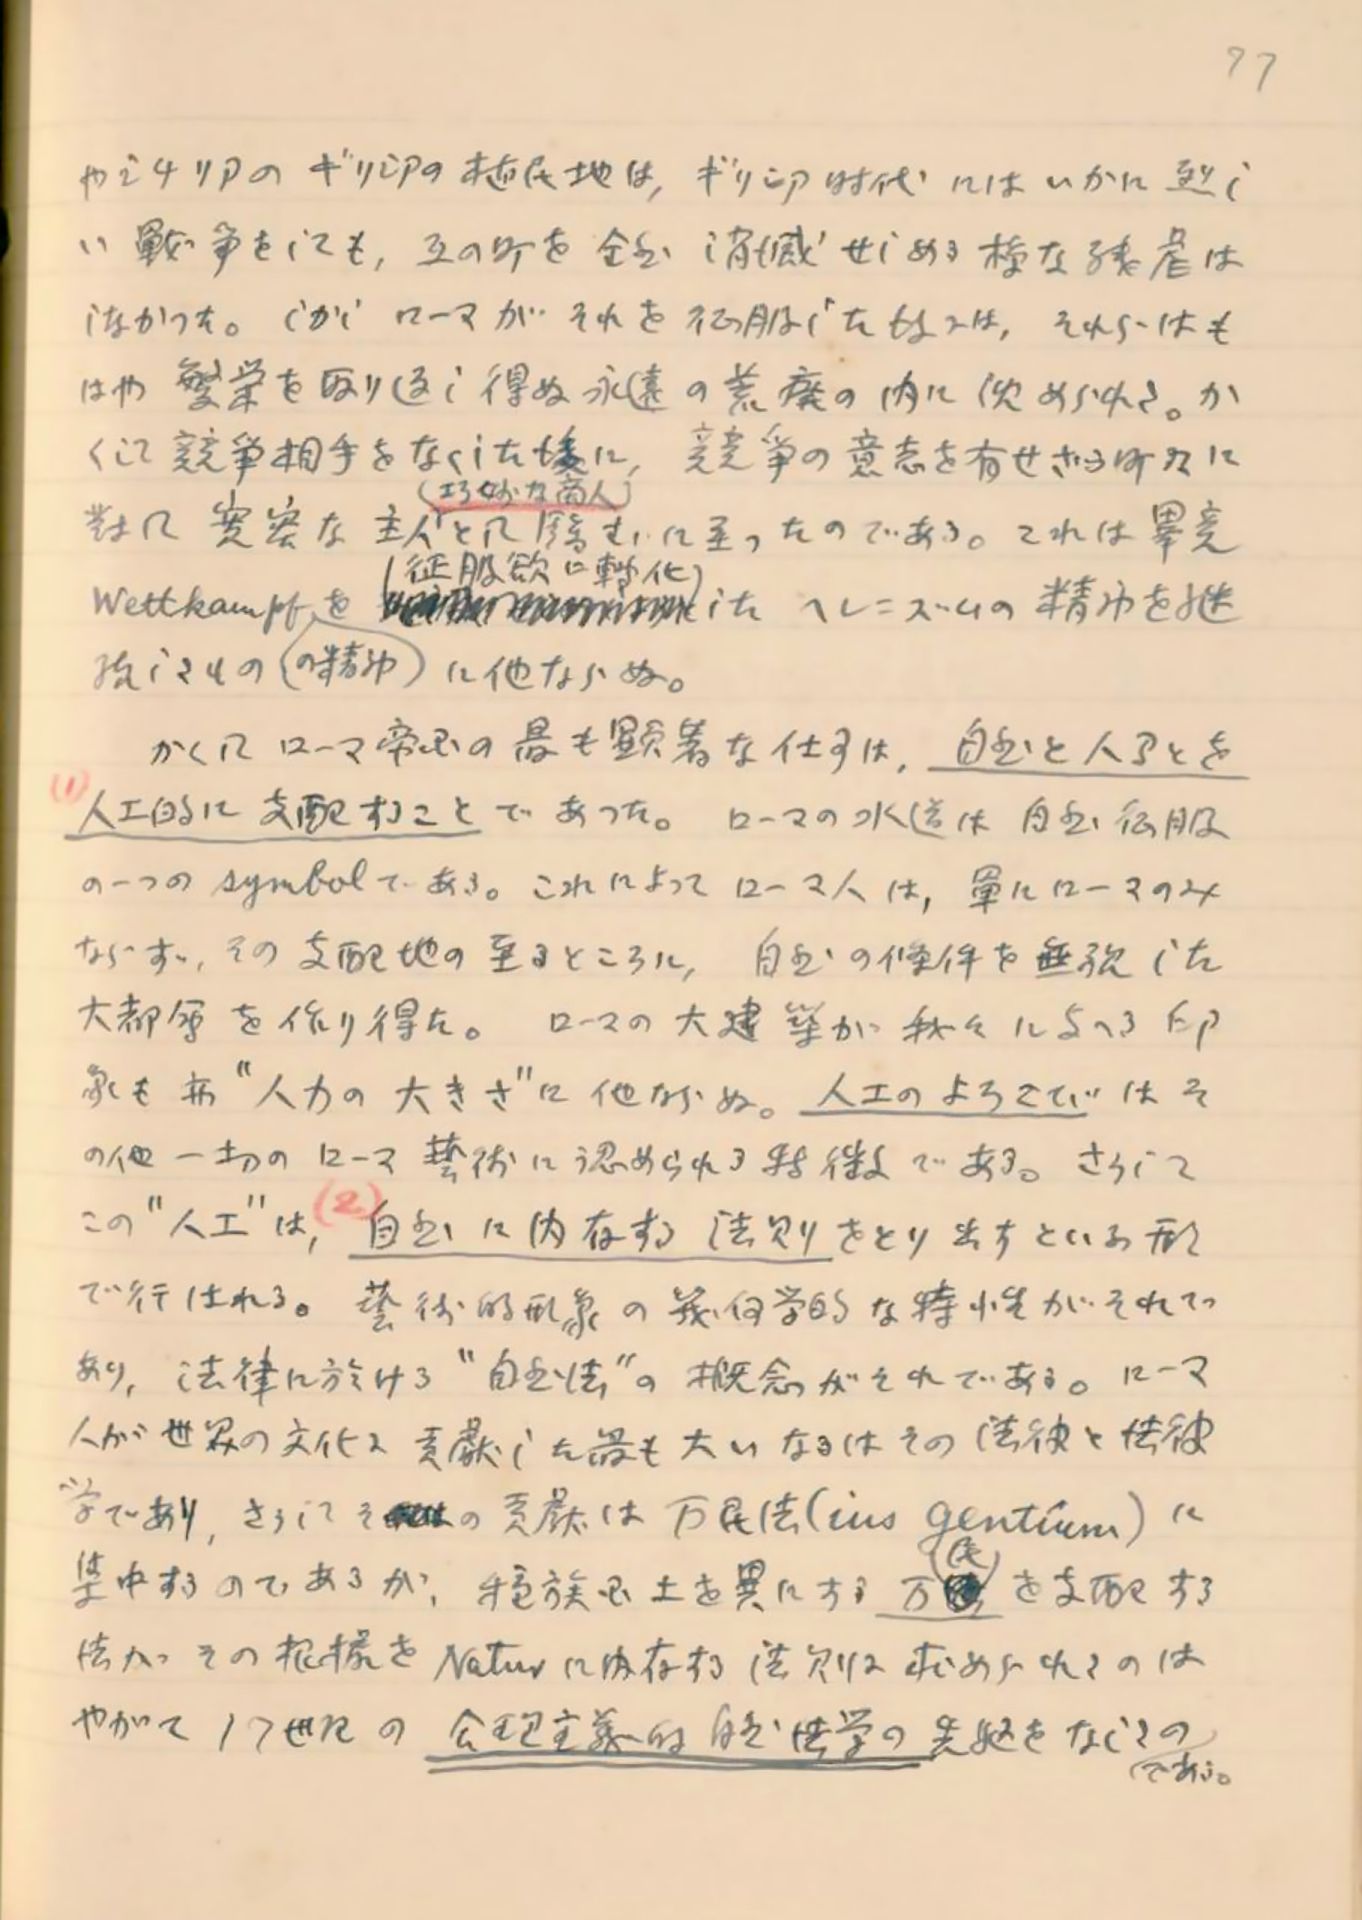 77
やシチリアのギリシアの植民地は，ギリシア時代にはいかに烈し
い戦争をしても，互の町を全然消滅せしめる様な残虐は
しなかつた。しかしローマがそれを征服した後には，それらはも
はや繁栄を取り返し得ぬ永遠の荒廃の内に沈められる。か
くして競争相手をなくした後に，競争の意志を有せざる町々に
(巧妙な商人)
対して 主人として臨むに至つたのである。これは畢竟
(征服欲に転化)
Wettkampfを した ヘレニズムの精神を継
承しるもの(の精神)に他ならぬ。
かくしてローマ帝国の最も顕著な仕事は，自然と人間とを
(1)
人工的に支配することであつた。ローマの水道は自然征服
の一つのsymbolである。これによってローマ人は，単にローマのみ
ならず，その支配地の至るところに，自然の條件を無視した
大都会を作り得た。ローマの大建築が我々に与へる印
象も亦"人力の大きさ"に他ならぬ。人工のよろこびはそ
の他一切のローマ藝術に認められる特徴である。さうして
この"人工"は，(2)自然に内存する法則をとり出すといふ形
で行はれる。藝術的形象の幾何学的な特性がそれで
あり，法律に於ける"自然法"の概念がそれである。ローマ
人が世界の文化に貢献した最も大いなるはその法律と法律
学であり，さうしてその貢献は万民法(ius gentium)に
集中するのであるが，種族国土を異にする万(民)を支配する
法がその根拠をNaturに内存する法則に求められるのは
やがて17世紀の合理主義的自然法学の先駆をなしるの
である。